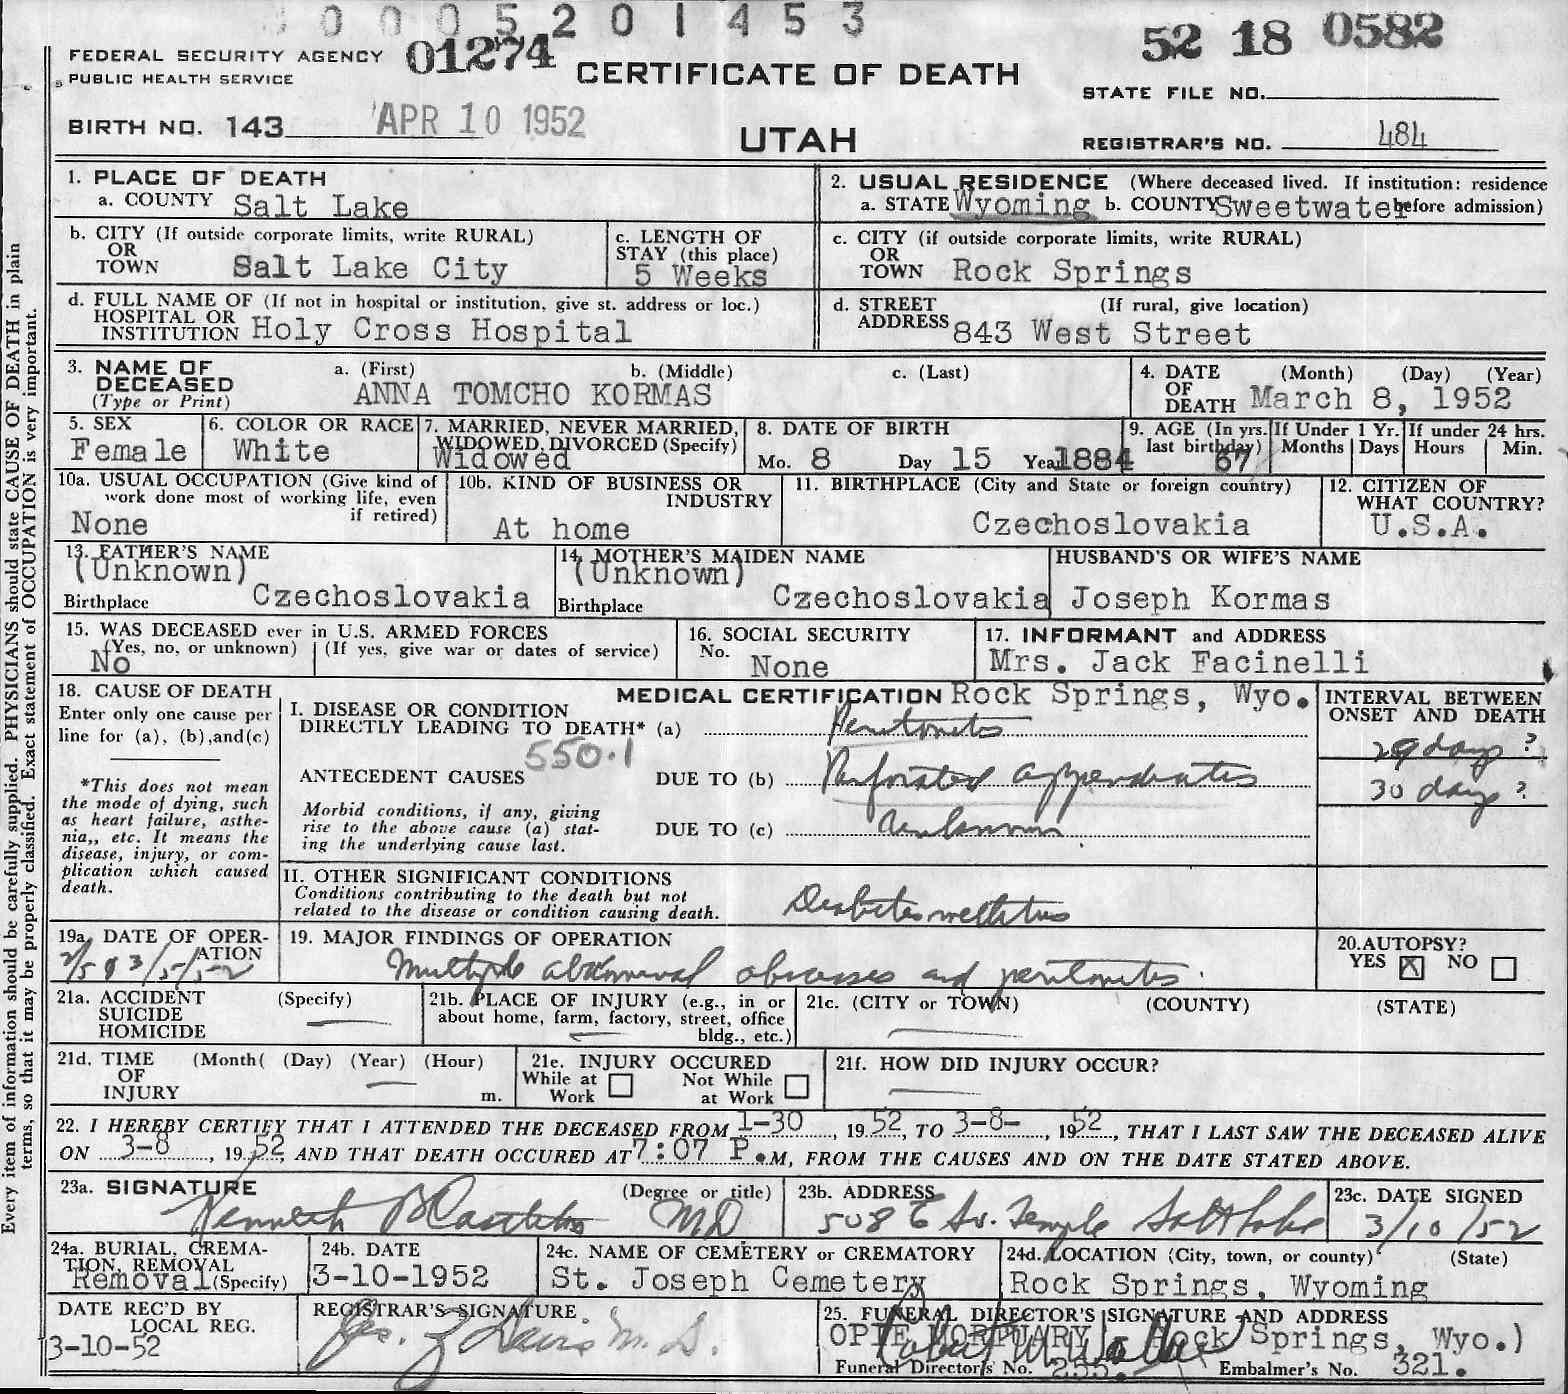 0 0 0 5 2 0 1 4 5 3
FEDERAL SECURITY AGENCY 01274 52 18 0582
PUBLIC HEALTH SERVICE CERTIFICATE OF DEATH
STATE FILE NO.
BIRTH NO. 143 APR 10 1952 UTAH REGISTRAR'S NO. 484
Every item of information should be carefully supplied. PHYSICIANS should state CAUSE OF DEATH in plain
terms, so that it may be properly classified. Exact statement of OCCUPATION is very important.
1. PLACE OF DEATH
a. COUNTY Salt Lake
2. USUAL RESIDENCE (Where deceased lived. If institution: residence
a. STATE Wyoming b. COUNTY Sweetwater before admission)
b. CITY (If outside corporate limits, write RURAL)
OR
TOWN Salt Lake City
c. LENGTH OF
STAY (this place)
5 Weeks
c. CITY (if outside corporate limits, write RURAL)
OR
TOWN Rock Springs
d. FULL NAME OF (If not in hospital or institution, give st. address or loc.)
HOSPITAL OR
INSTITUTION Holy Cross Hospital
d. STREET (If rural, give location)
ADDRESS 843 West Street
3. NAME OF a. (First) b. (Middle) c. (Last)
DECEASED
(Type or Print) ANNA TOMCHO KORMAS
4. DATE (Month) (Day) (Year)
OF
DEATH March 8, 1952
5. SEX
Female
6. COLOR OR RACE
White
7. MARRIED, NEVER MARRIED,
WIDOWED, DIVORCED (Specify)
Widowed
8. DATE OF BIRTH
Mo. 8 Day 15 Year 1884
9. AGE (In yrs. last birthday) 67
If Under 1 Yr.
Months Days
If under 24 hrs.
Hours Min.
10a. USUAL OCCUPATION (Give kind of
work done most of working life, even
if retired)
None
10b. KIND OF BUSINESS OR
INDUSTRY
At home
11. BIRTHPLACE (City and State or foreign country)
Czechoslovakia
12. CITIZEN OF
WHAT COUNTRY?
U.S.A.
13. FATHER'S NAME
(Unknown)
Birthplace Czechoslovakia
14. MOTHER'S MAIDEN NAME
(Unknown)
Birthplace Czechoslovakia
HUSBAND'S OR WIFE'S NAME
Joseph Kormas
15. WAS DECEASED ever in U.S. ARMED FORCES
(Yes, no, or unknown) (If yes, give war or dates of service)
No
16. SOCIAL SECURITY
No. None
17. INFORMANT and ADDRESS
Mrs. Jack Facinelli
18. CAUSE OF DEATH
Enter only one cause per
line for (a), (b),and(c)
*This does not mean
the mode of dying, such
as heart failure, asthe-
nia,, etc. It means the
disease, injury, or com-
plication which caused
death.
MEDICAL CERTIFICATION Rock Springs, Wyo.
INTERVAL BETWEEN
ONSET AND DEATH
I. DISEASE OR CONDITION
DIRECTLY LEADING TO DEATH* (a) Peritonitis 29 days ?
550.1
ANTECEDENT CAUSES DUE TO (b) Perforated appendicitis 30 days ?
Morbid conditions, if any, giving
rise to the above cause (a) stat-
ing the underlying cause last.
DUE TO (c) unknown
II. OTHER SIGNIFICANT CONDITIONS
Conditions contributing to the death but not
related to the disease or condition causing death.
Diabetes mellitus
19a. DATE OF OPER-
ATION
2/5 & 3/5/52
19. MAJOR FINDINGS OF OPERATION
Multiple abdominal abscesses and peritonitis.
20.AUTOPSY?
YES X NO
21a. ACCIDENT (Specify)
SUICIDE
HOMICIDE
21b. PLACE OF INJURY (e.g., in or
about home, farm, factory, street, office
bldg., etc.)
21c. (CITY or TOWN) (COUNTY) (STATE)
21d. TIME (Month( (Day) (Year) (Hour)
OF
INJURY m.
21e. INJURY OCCURED
While at Work Not While at Work
21f. HOW DID INJURY OCCUR?
22. I HEREBY CERTIFY THAT I ATTENDED THE DECEASED FROM 1-30, 19 52, TO 3-8-, 19 52, THAT I LAST SAW THE DECEASED ALIVE
ON 3-8, 19 52, AND THAT DEATH OCCURED AT 7:07 P.M, FROM THE CAUSES AND ON THE DATE STATED ABOVE.
23a. SIGNATURE (Degree or title)
Kenneth B Castleton MD
23b. ADDRESS
508 E So. Temple Salt Lake
23c. DATE SIGNED
3/10/52
24a. BURIAL, CREMA-
TION, REMOVAL
Removal (Specify)
24b. DATE
3-10-1952
24c. NAME OF CEMETERY or CREMATORY
St. Joseph Cemetery
24d. LOCATION (City, town, or county) (State)
Rock Springs, Wyoming
DATE REC'D BY
LOCAL REG.
3-10-52
REGISTRAR'S SIGNATURE
M.D.
25. FUNERAL DIRECTOR'S SIGNATURE AND ADDRESS
OPIE MORTUARY Rock Springs, Wyo.)
Funeral Director's No. 255. Embalmer's No. 321.